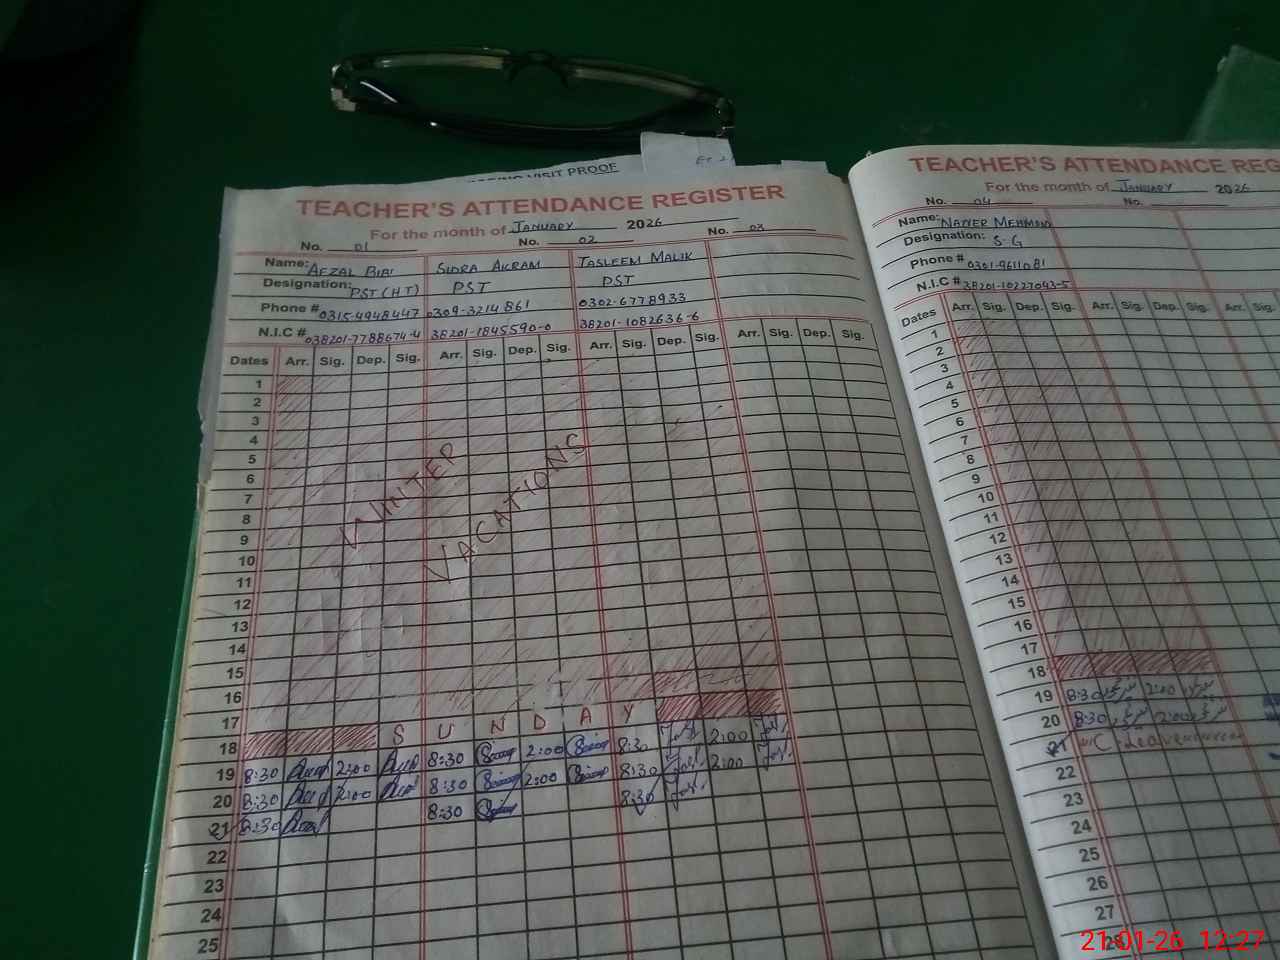 VISIT PROOF
TEACHER'S ATTENDANCE REGISTER
For the month of JANUARY 2026
No. 01 No. 02 No. 03
Name: AFZAL BIBI SIDRA AKRAM TASLEEM MALIK
Designation: PST (HT) PST PST
Phone # 0315-4948447 0309-3214861 0302-6778933
N.I.C # 038201-7788674-4 38201-1845590-0 38201-1082636-6
Dates Arr. Sig. Dep. Sig. Arr. Sig. Dep. Sig. Arr. Sig. Dep. Sig. Arr. Sig. Dep. Sig.
1
2
3
4
5
6
7
8
9
10
11
12
13
14
15
16
17
WINTER
VACATIONS
18 SUNDAY
19 8:30 2:00 8:30 2:00 8:30 2:00
20 8:30 2:00 8:30 2:00 8:30 2:00
21 8:30 8:30 8:30
22
23
24
25
TEACHER'S ATTENDANCE REG
For the month of JANUARY 2026
No. 04 No.
Name:
Designation: S.G
Phone # 0301-9611081
N.I.C # 38201-10227043-5
Dates Arr. Sig. Dep. Sig. Arr. Sig. Dep. Sig. Arr. Sig.
1
2
3
4
5
6
7
8
9
10
11
12
13
14
15
16
17
18
19 8:30 2:00
20 8:30 2:00
21 C-Leave
22
23
24
25
26
27
28
21-01-26 12:27